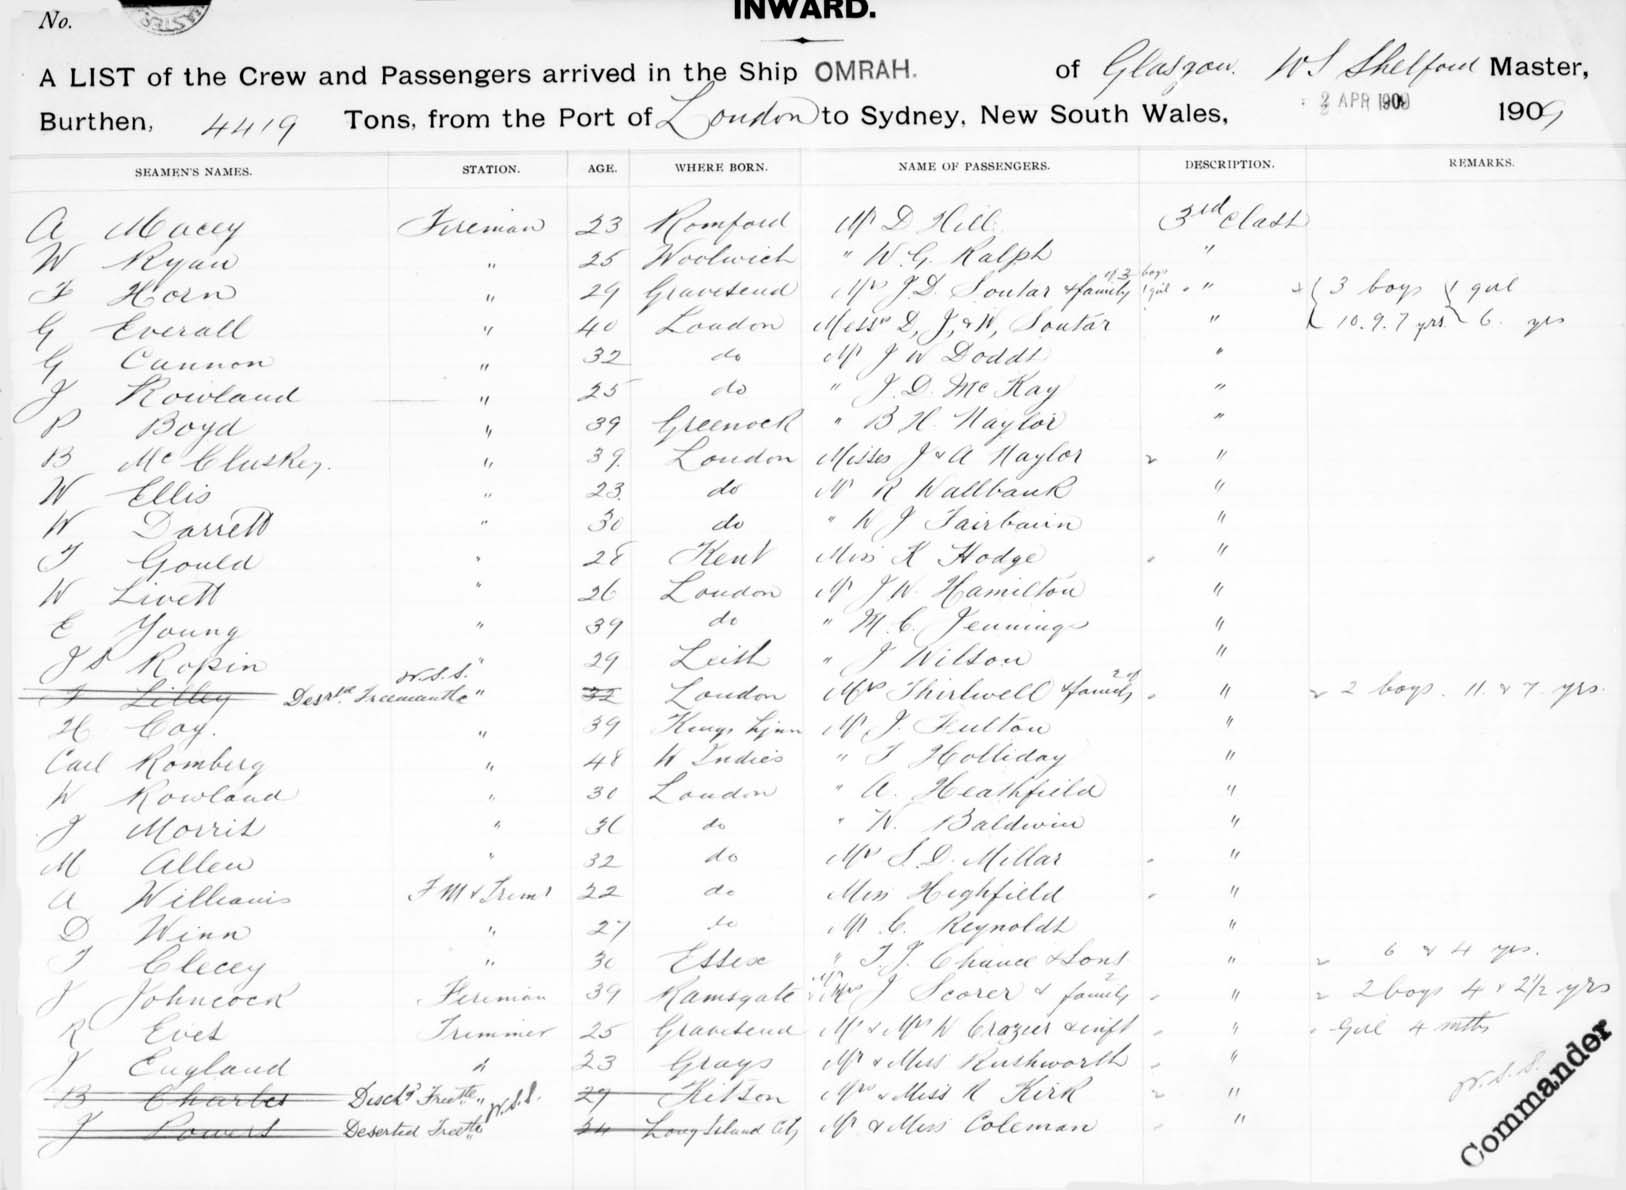 No.
INWARD.
A LIST of the Crew and Passengers arrived in the Ship OMRAH. of Glasgow. W S Shelford Master,
Burthen, 4419 Tons, from the Port of London to Sydney, New South Wales, 2 APR 1909 1909
SEAMEN'S NAMES. STATION. AGE. WHERE BORN. NAME OF PASSENGERS. DESCRIPTION. REMARKS.
A Macey Fireman 23 Romford Mr D Hill 3rd Class
W Ryan " 25 Woolwich " W. G. Ralph "
F Horn " 29 Gravesend Mrs J. D. Soutar & family of 3 boys 1 girl " 3 boys 1 girl
G Everall " 40 London Messrs D, J, & W, Soutar " 10. 9. 7 yrs 6. yrs
G Cannon " 32 do Mr J W Dodds "
J Rowland " 25 do " J. D. McKay "
P Boyd " 39 Greenock " B H. Naylor "
B McCluskey. " 39. London Misses J & A Naylor "
W Ellis " 23. do Mr R Wallbank "
W Darrett " 30 do " W J Fairbairn "
T Gould " 28 Kent Miss K Hodge "
W Livett " 26 London Mr J. W. Hamilton "
E Young " 39 do " M. C. Jennings "
J S Ropin " 29 Leith " J Wilson "
F Lilley Desrtd. Freemantle W.S.S. " 32 London Mrs Thirlwell & family 2 of " 2 boys. 11. & 7 yrs.
H Coy. " 39 Kings Lynn Mr J. Fulton "
Carl Romberg " 48 W Indies " T Holliday "
W Rowland " 30 London " A. Heathfield "
J Morris " 36 do " W. Baldwin "
M Allen " 32 do Mrs S. D. Millar "
A Williams F M & Trimr 22 do Miss Highfield "
D Winn " 27 do Mr C. Reynolds "
T Clecey " 30 Essex " T. J. Chance & Sons " 6 & 4 yrs.
J Johncock Fireman 39 Ramsgate Mrs J Scorer & family 2 " 2 boys 4 & 2½ yrs
R Eves Trimmer 25 Gravesend Mr & Mrs W Crazier & inft " Girl 4 mths
J England " 23 Grays Mr & Miss Rushworth "
B Charles Dischd Freetle " W.S.S. 27 Kitson Mrs & Miss R Kirk " W.S.S.
J Powers Deserted Freetle " 34 Long Island City Mr & Miss Coleman "
Commander